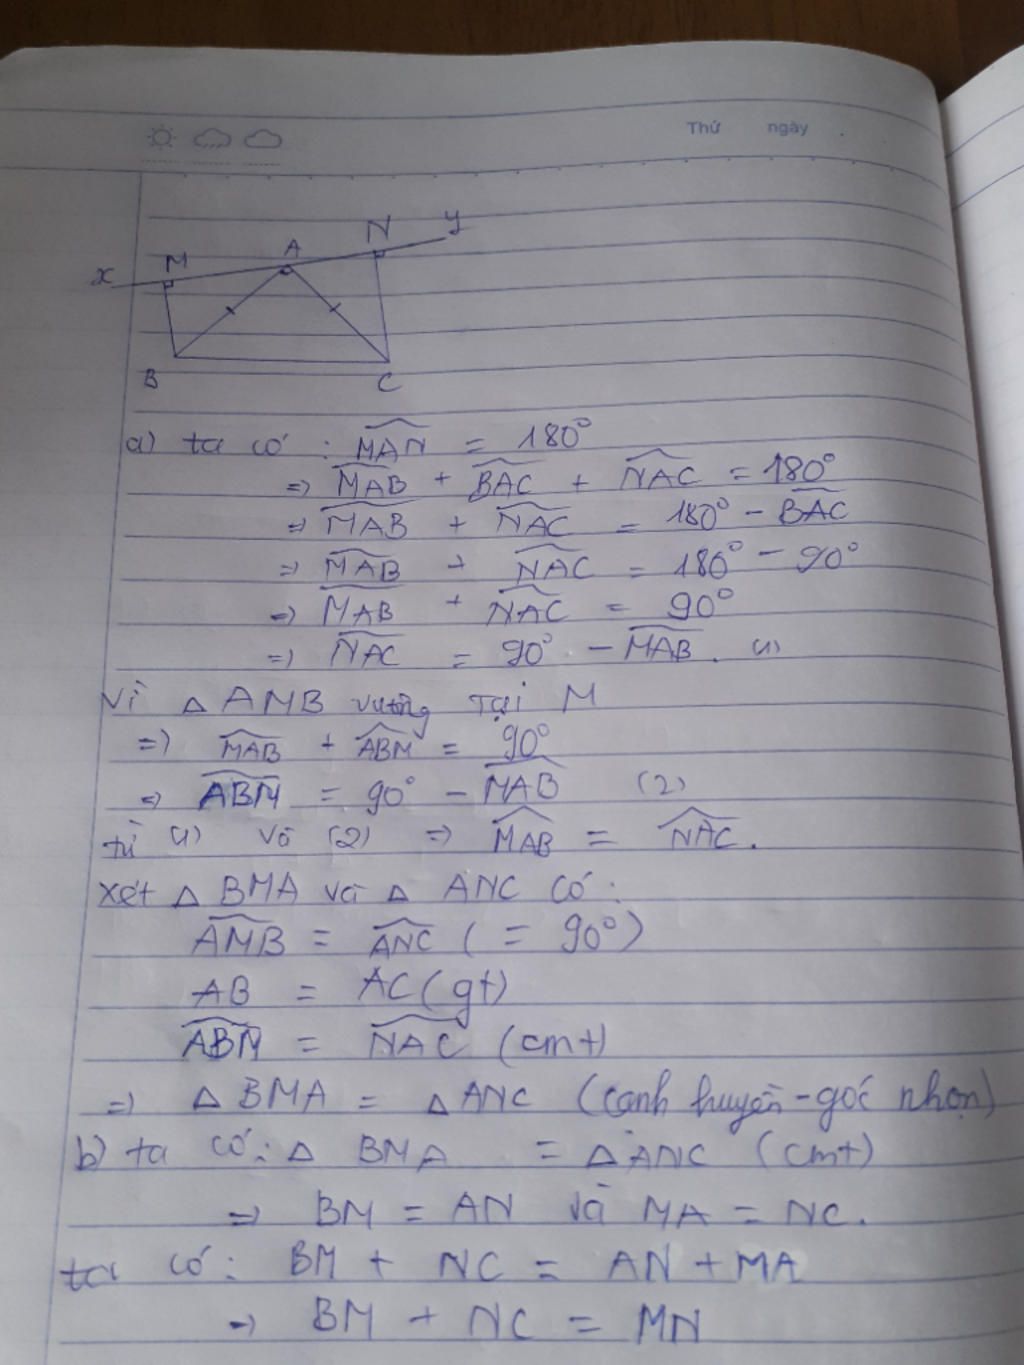 Thứ ngày
N y
x M A
B C
a) ta có : MAN = 180°
=> MAB + BAC + NAC = 180°
=> MAB + NAC = 180° - BAC
=> MAB + NAC = 180° - 90°
=> MAB + NAC = 90°
=> NAC = 90° - MAB. (1)
Vì △ AMB vuông tại M
=> MAB + ABM = 90°
=> ABM = 90° - MAB (2)
từ (1) và (2) => MAB = NAC.
Xét △ BMA và △ ANC có:
AMB = ANC ( = 90°)
AB = AC (gt)
ABM = NAC (cmt)
=> △ BMA = △ ANC (cạnh huyền - góc nhọn)
b) ta có: △ BMA = △ ANC (cmt)
=> BM = AN và MA = NC.
ta có: BM + NC = AN + MA
=> BM + NC = MN